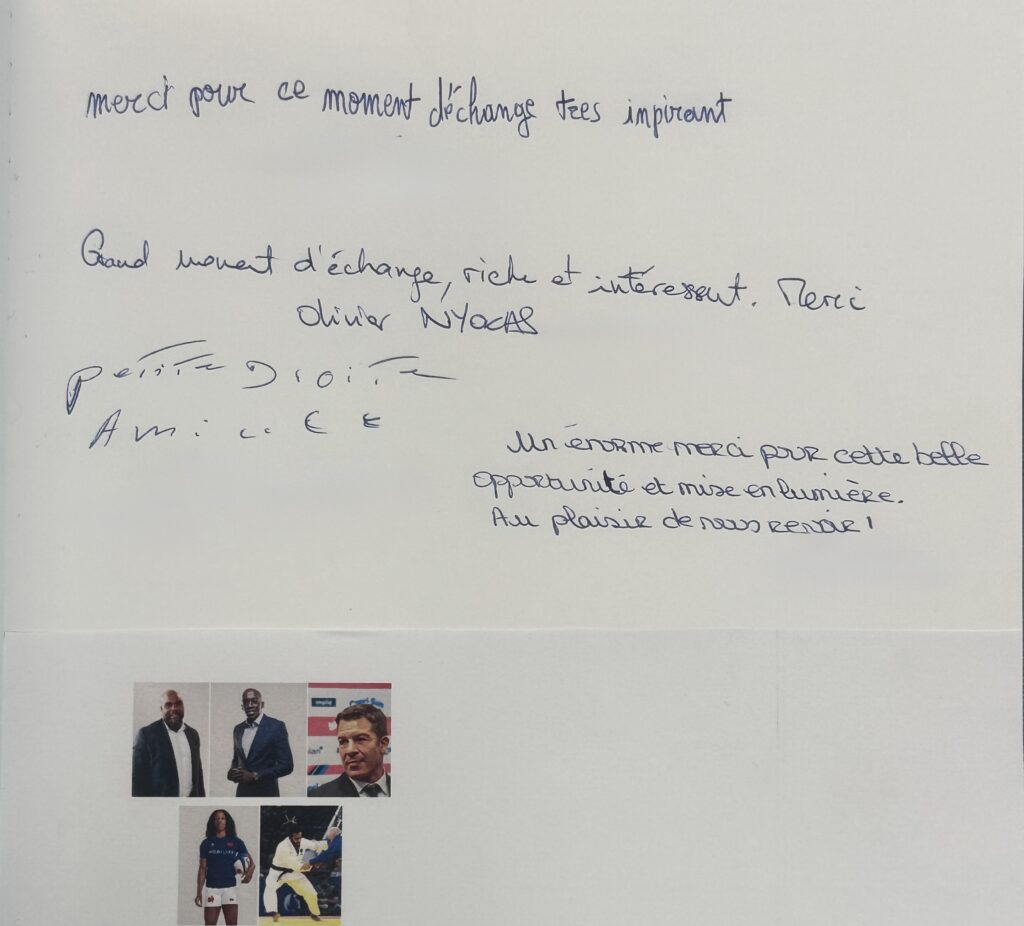 merci pour ce moment d'échange tres inpirant
Grand moment d'échange, riche et intéressant. Merci
Olivier NYOKAS
petite Droite
Un énorme merci pour cette belle
opportunité et mise en lumière.
Au plaisir de nous revoir !